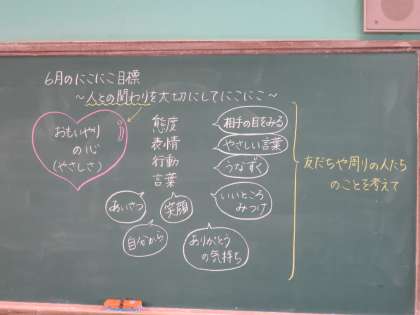 6月のにこにこ目標
～人との関わりを大切にしてにこにこ～
おもいやり
の心
(やさしさ)
態度
表情
行動
言葉
相手の目をみる
やさしい言葉
うなずく
いいところ
みつけ
あいさつ
笑顔
自分から
ありがとう
の気持ち
友だちや周りの人たち
のことを考えて